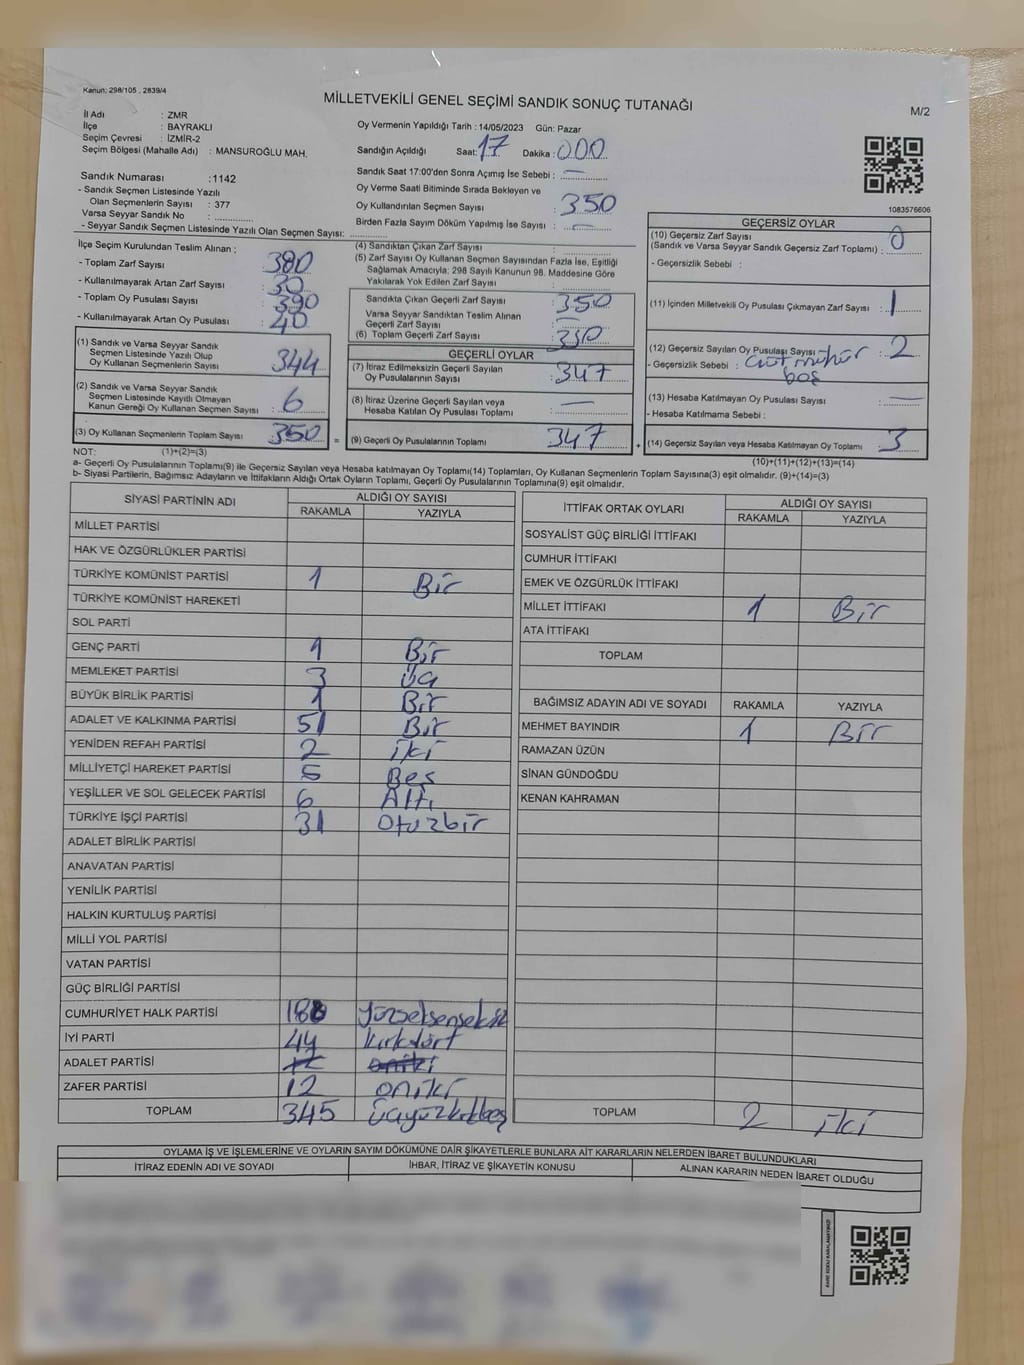 Kanun: 298/105 , 2839/4
MİLLETVEKİLİ GENEL SEÇİMİ SANDIK SONUÇ TUTANAĞI
M/2
İl Adı : ZMR
İlçe : BAYRAKLI
Seçim Çevresi : İZMİR-2
Seçim Bölgesi (Mahalle Adı) : MANSUROĞLU MAH.
Sandık Numarası :1142
- Sandık Seçmen Listesinde Yazılı
Olan Seçmenlerin Sayısı : 377
Varsa Seyyar Sandık No :
- Seyyar Sandık Seçmen Listesinde Yazılı Olan Seçmen Sayısı:
Oy Vermenin Yapıldığı Tarih : 14/05/2023 Gün: Pazar
Sandığın Açıldığı Saat: 17 Dakika : 000
Sandık Saat 17:00'den Sonra Açımış İse Sebebi : —
Oy Verme Saati Bitiminde Sırada Bekleyen ve
Oy Kullandırılan Seçmen Sayısı : 350
Birden Fazla Sayım Döküm Yapılmış İse Sayısı : —
1083576606
İlçe Seçim Kurulundan Teslim Alınan ;
- Toplam Zarf Sayısı : 380
- Kullanılmayarak Artan Zarf Sayısı : 30
- Toplam Oy Pusulası Sayısı : 390
- Kullanılmayarak Artan Oy Pusulası : 40
(1) Sandık ve Varsa Seyyar Sandık
Seçmen Listesinde Yazılı Olup
Oy Kullanan Seçmenlerin Sayısı : 344
(2) Sandık ve Varsa Seyyar Sandık
Seçmen Listesinde Kayıtlı Olmayan
Kanun Gereği Oy Kullanan Seçmen Sayısı : 6
(3) Oy Kullanan Seçmenlerin Toplam Sayısı : 350 =
(4) Sandıktan Çıkan Zarf Sayısı :
(5) Zarf Sayısı Oy Kullanan Seçmen Sayısından Fazla İse, Eşitliği
Sağlamak Amacıyla; 298 Sayılı Kanunun 98. Maddesine Göre
Yakılarak Yok Edilen Zarf Sayısı :
Sandıkta Çıkan Geçerli Zarf Sayısı : 350
Varsa Seyyar Sandıktan Teslim Alınan
Geçerli Zarf Sayısı : —
(6) Toplam Geçerli Zarf Sayısı : 350
GEÇERLİ OYLAR
(7) İtiraz Edilmeksizin Geçerli Sayılan
Oy Pusulalarının Sayısı : 347
(8) İtiraz Üzerine Geçerli Sayılan veya
Hesaba Katılan Oy Pusulası Toplamı : —
(9) Geçerli Oy Pusulalarının Toplamı : 347 +
GEÇERSİZ OYLAR
(10) Geçersiz Zarf Sayısı
(Sandık ve Varsa Seyyar Sandık Geçersiz Zarf Toplamı) : 0
- Geçersizlik Sebebi :
(11) İçinden Milletvekili Oy Pusulası Çıkmayan Zarf Sayısı : 1
(12) Geçersiz Sayılan Oy Pusulası Sayısı : 2
- Geçersizlik Sebebi : Çift mühür
boş
(13) Hesaba Katılmayan Oy Pusulası Sayısı : —
- Hesaba Katılmama Sebebi :
(14) Geçersiz Sayılan veya Hesaba Katılmayan Oy Toplamı : 3
NOT: (1)+(2)=(3)
(10)+(11)+(12)+(13)=(14)
a- Geçerli Oy Pusulalarının Toplamı(9) ile Geçersiz Sayılan veya Hesaba katılmayan Oy Toplamı(14) Toplamları, Oy Kullanan Seçmenlerin Toplam Sayısına(3) eşit olmalıdır. (9)+(14)=(3)
b- Siyasi Partilerin, Bağımsız Adayların ve İttifakların Aldığı Ortak Oyların Toplamı, Geçerli Oy Pusulalarının Toplamına(9) eşit olmalıdır.
SİYASİ PARTİNİN ADI ALDIĞI OY SAYISI
RAKAMLA YAZIYLA
MİLLET PARTİSİ
HAK VE ÖZGÜRLÜKLER PARTİSİ
TÜRKİYE KOMÜNİST PARTİSİ 1 Bir
TÜRKİYE KOMÜNİST HAREKETİ
SOL PARTİ
GENÇ PARTİ 1 Bir
MEMLEKET PARTİSİ 3 Üç
BÜYÜK BİRLİK PARTİSİ 1 Bir
ADALET VE KALKINMA PARTİSİ 51 Bir
YENİDEN REFAH PARTİSİ 2 iki
MİLLİYETÇİ HAREKET PARTİSİ 5 Beş
YEŞİLLER VE SOL GELECEK PARTİSİ 6 Altı
TÜRKİYE İŞÇİ PARTİSİ 31 Otuzbir
ADALET BİRLİK PARTİSİ
ANAVATAN PARTİSİ
YENİLİK PARTİSİ
HALKIN KURTULUŞ PARTİSİ
MİLLİ YOL PARTİSİ
VATAN PARTİSİ
GÜÇ BİRLİĞİ PARTİSİ
CUMHURİYET HALK PARTİSİ 188 Yüzseksensekiz
İYİ PARTİ 44 kırkdört
ADALET PARTİSİ 12 oniki
ZAFER PARTİSİ 12 oniki
TOPLAM 345 üçyüzkırkbeş
İTTİFAK ORTAK OYLARI ALDIĞI OY SAYISI
RAKAMLA YAZIYLA
SOSYALİST GÜÇ BİRLİĞİ İTTİFAKI
CUMHUR İTTİFAKI
EMEK VE ÖZGÜRLÜK İTTİFAKI
MİLLET İTTİFAKI 1 Bir
ATA İTTİFAKI
TOPLAM
BAĞIMSIZ ADAYIN ADI VE SOYADI RAKAMLA YAZIYLA
MEHMET BAYINDIR 1 Bir
RAMAZAN ÜZÜN
SİNAN GÜNDOĞDU
KENAN KAHRAMAN
TOPLAM 2 iki
OYLAMA İŞ VE İŞLEMLERİNE VE OYLARIN SAYIM DÖKÜMÜNE DAİR ŞİKAYETLERLE BUNLARA AİT KARARLARIN NELERDEN İBARET BULUNDUKLARI
İTİRAZ EDENİN ADI VE SOYADI İHBAR, İTİRAZ VE ŞİKAYETİN KONUSU ALINAN KARARIN NEDEN İBARET OLDUĞU